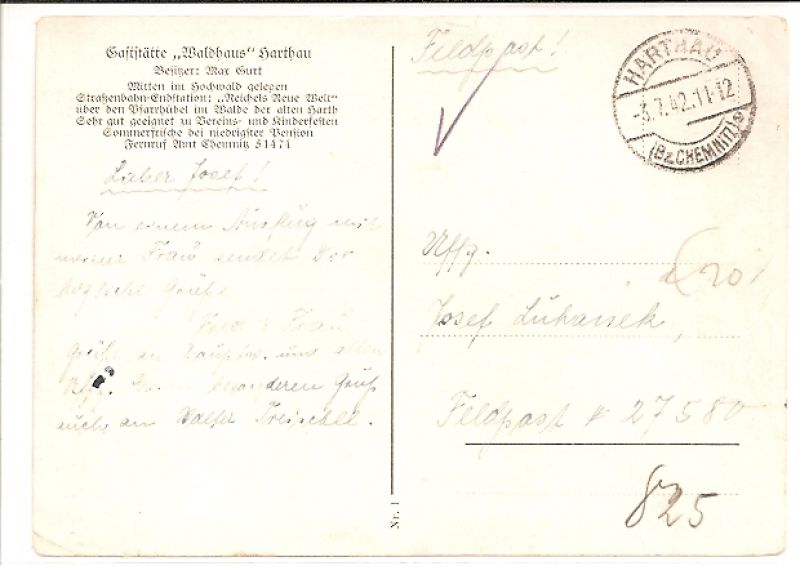 Gaststätte „Waldhaus“ Harthau
Besitzer: Max Gurt
Mitten im Hochwald gelegen
Straßenbahn-Endstation: „Reichels Neue Welt“
über den Pfarrhübel im Walde der alten Harth
Sehr gut geeignet zu Vereins- und Kinderfesten
Sommerfrische bei niedrigster Pension
Fernruf Amt Chemnitz 51471
Lieber Josef!
Von einem Ausflug mit
meiner Frau sendet Dir
herzliche Grüße
Frau
Grüße an und allen
besonderen Gruß
auch an Walter
Nr. 1
Feldpost!
HARTHAU
-3.7.42.11-12
(Bz. CHEMNITZ)
Uffz.
Josef
Feldpost № 27580
825